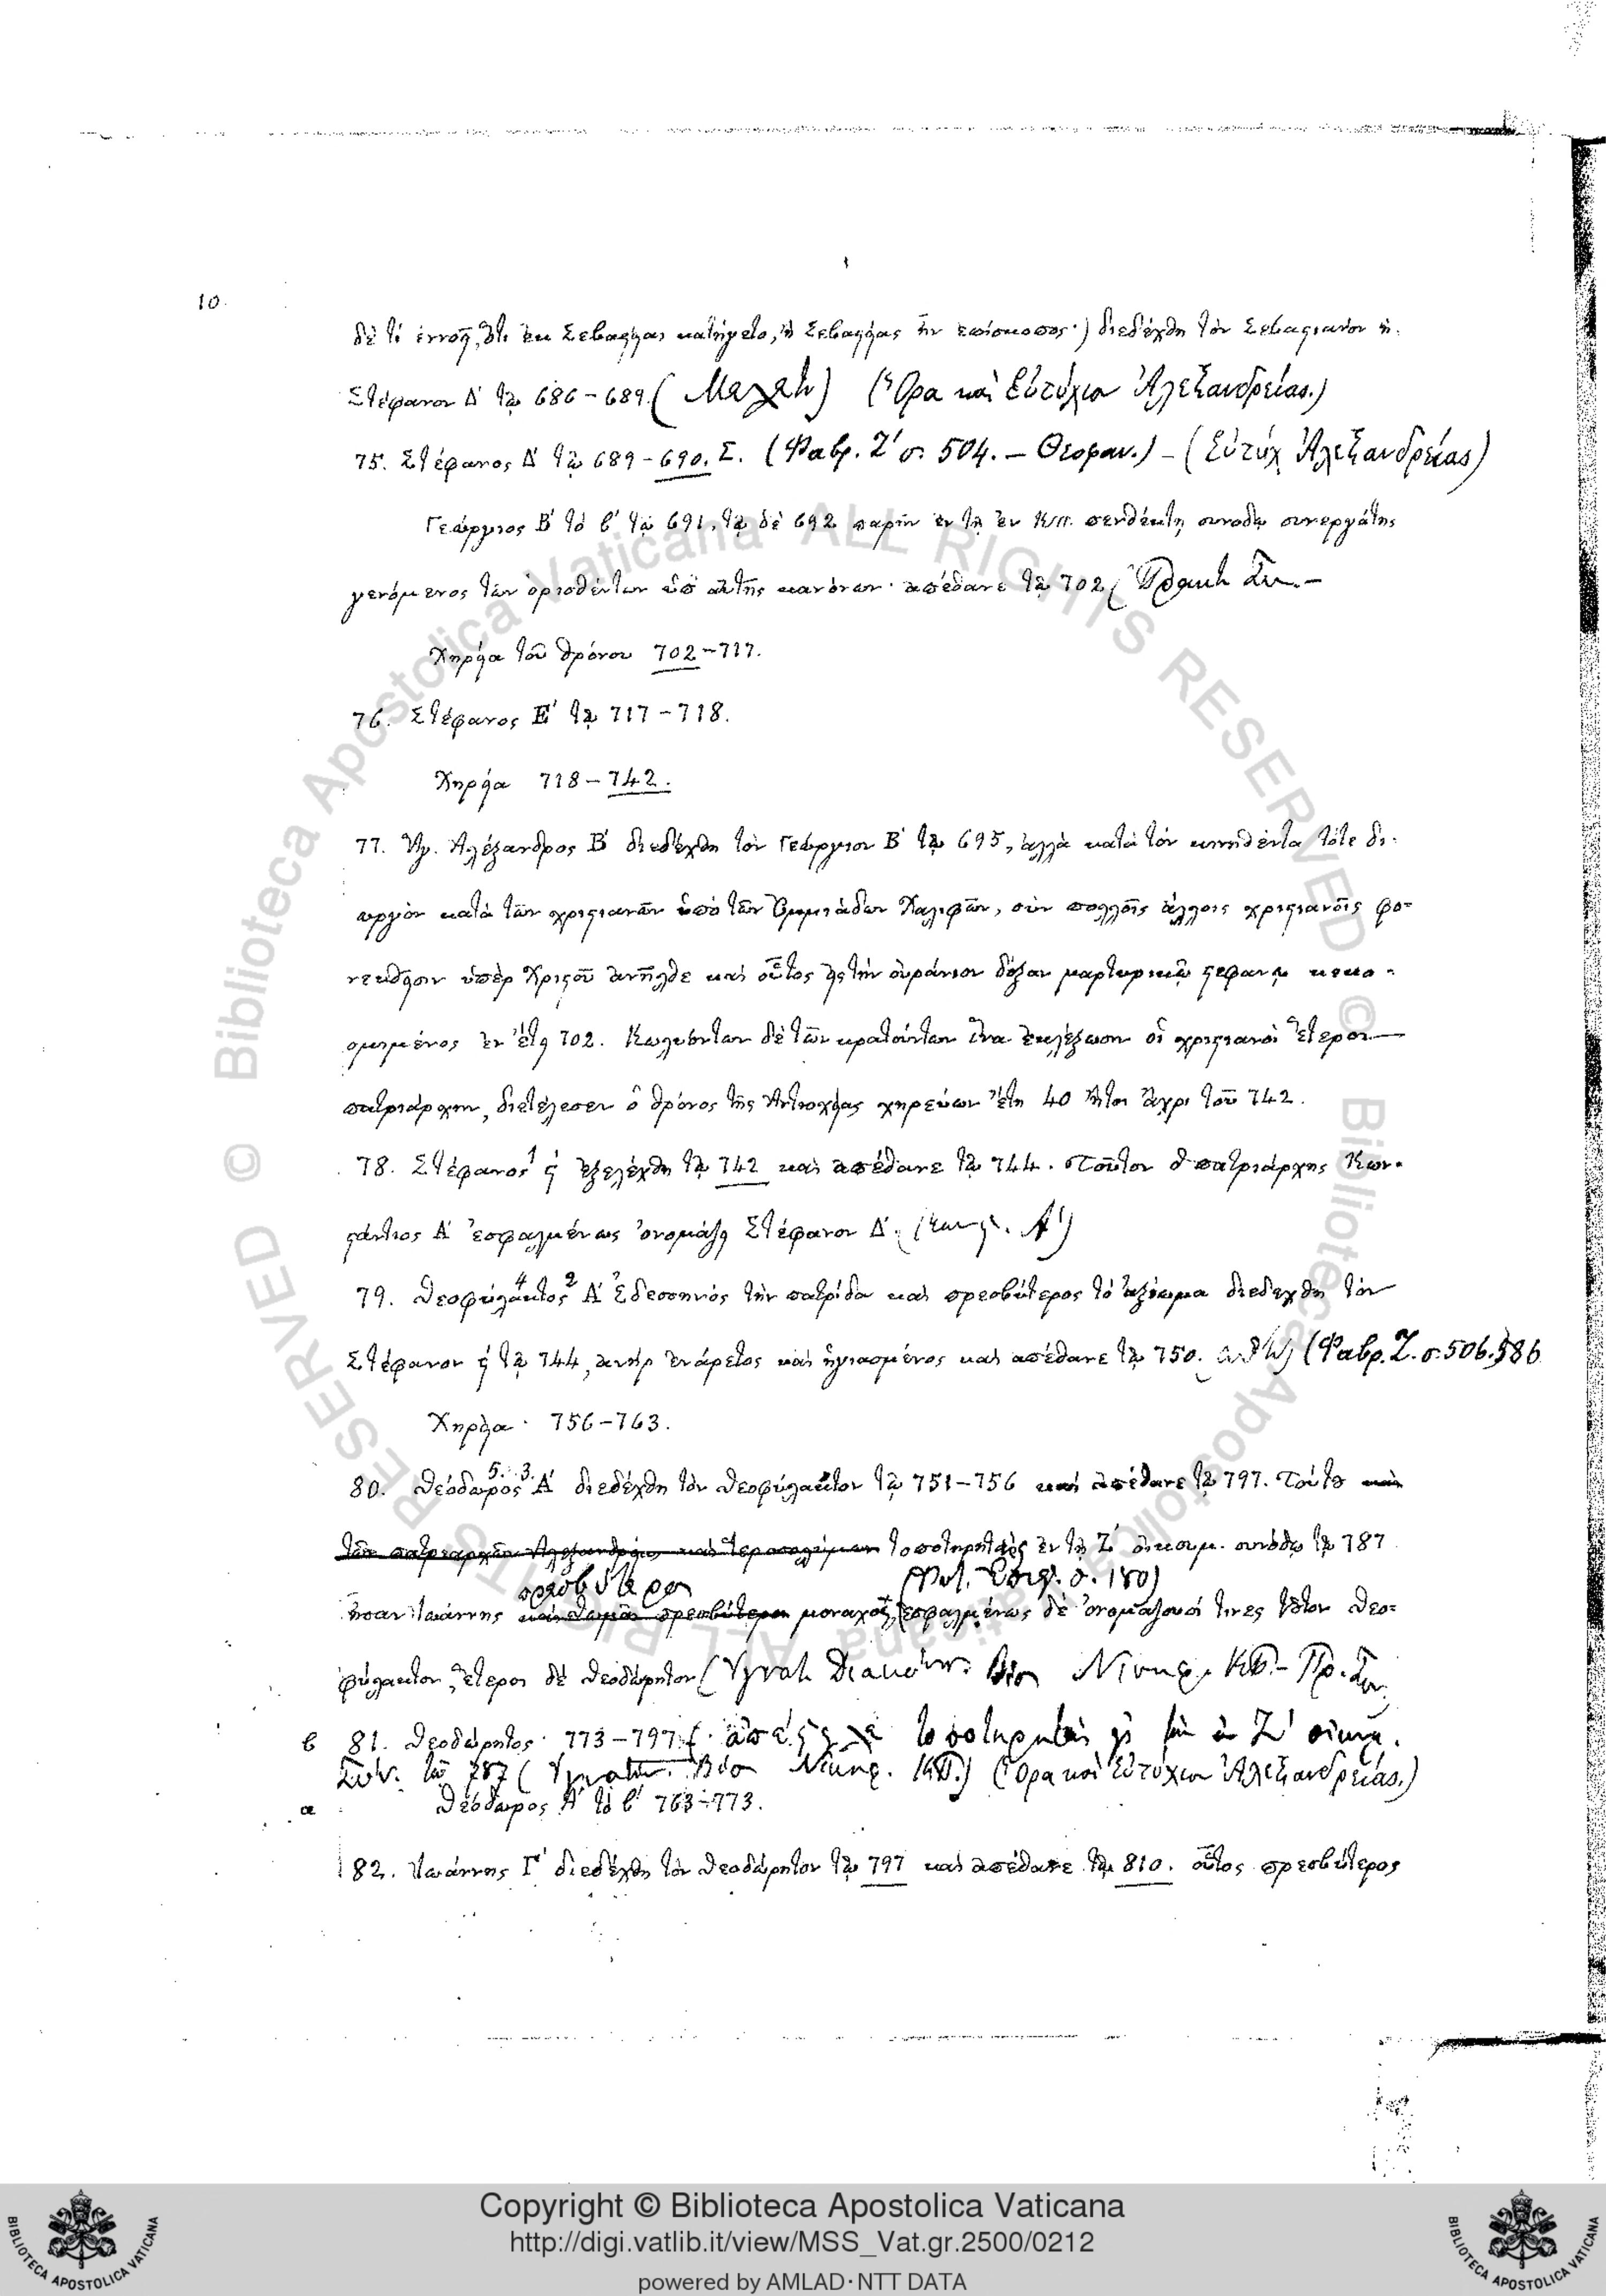 10.
δὲ τὸ ἐννοῇ, ὅτι ἐκ Σεβαστείας κατήγετο, ἢ Σεβαστείας ἦν ἐπίσκοπος·) διεδέχθη τὸν Σεβαστιανὸν ἢ
Στέφανον Δ' τῷ 686-689. (Ὅρα καὶ Εὐτύχιον Ἀλεξανδρείας.)
75. Στέφανος Δ' τῷ 689-690. Σ. (Φαβρ. Ζ' σ. 504. – Θεοφαν.) – (Εὐτύχ Ἀλεξανδρείας)
Γεώργιος Β' τὸ β' τῷ 691, τῷ δὲ 692 παρῆν ἐν τῇ ἐν Κπ. πενθέκτῃ συνόδῳ συνεργάτης
γενόμενος τῶν ὁρισθέντων ὑπ' αὐτῆς κανόνων· ἀπέθανε τῷ 702 (
Χηρεία τοῦ θρόνου 702-717.
76. Στέφανος Ε' τῷ 717-718.
Χηρεία 718-742.
77. Ἀλέξανδρος Β' διεδέχθη τὸν Γεώργιον Β' τῷ 695, ἀλλὰ κατὰ τὸν κινηθέντα τότε δι-
ωγμὸν κατὰ τῶν χριστιανῶν ὑπὸ τῶν Ὀμμιάδων Χαλιφῶν, σὺν πολλοῖς ἄλλοις χριστιανοῖς φο-
νευθεὶς ὑπὲρ Χριστοῦ ἀνῆλθε καὶ οὗτος εἰς τὴν οὐράνιον δόξαν μαρτυρικῷ στεφάνῳ κεκο-
σμημένος ἐν ἔτει 702. Κωλυόντων δὲ τῶν κρατούντων ἵνα ἐκλέξωσιν οἱ χριστιανοὶ ἕτερον
πατριάρχην, διετέλεσεν ὁ θρόνος τῆς Ἀντιοχείας χηρεύων ἔτη 40 ἤτοι ἄχρι τοῦ 742.
78. Στέφανος ϛ' ἐξελέχθη τῷ 742 καὶ ἀπέθανε τῷ 744. Τοῦτον ὁ πατριάρχης Κων-
στάντιος Α' ἐσφαλμένως ὀνομάζει Στέφανον Δ'.
79. Θεοφύλακτος Α' Ἐδεσσηνὸς τὴν πατρίδα καὶ πρεσβύτερος τὸ ἀξίωμα διεδέχθη τὸν
Στέφανον ϛ' τῷ 744, ἀνὴρ ἐνάρετος καὶ ἡγιασμένος καὶ ἀπέθανε τῷ 750. (Φαβρ. Ζ. σ. 506.586
Χηρεία· 756-763.
80. Θεόδωρος Α' διεδέχθη τὸν Θεοφύλακτον τῷ 751-756 καὶ ἀπέθανε τῷ 797. Τούτου καὶ
τῶν πατριαρχῶν Ἀλεξανδρείας καὶ Ἱεροσολύμων τοποτηρητὴς ἐν τῇ Ζ' οἰκουμ. συνόδῳ τῷ 787
πρεσβύτερος
ἦσαν Ἰωάννης καὶ Θωμᾶς πρεσβύτεροι μοναχοὶ, ἐσφαλμένως δὲ ὀνομάζουσί τινες τοῦτον Θεο-
φύλακτον, ἕτεροι δὲ Θεοδώρητον (
β 81. Θεοδώρητος· 773-797
Συν. τῷ 787 (Ὅρα καὶ Εὐτύχιον Ἀλεξανδρείας.)
α Θεόδωρος Α' τὸ β' 763-773.
82. Ἰωάννης Γ' διεδέχθη τὸν Θεοδώρητον τῷ 797 καὶ ἀπέθανε τῷ 810. οὗτος πρεσβύτερος
Copyright © Biblioteca Apostolica Vaticana
http://digi.vatlib.it/view/MSS_Vat.gr.2500/0212
powered by AMLAD·NTT DATA